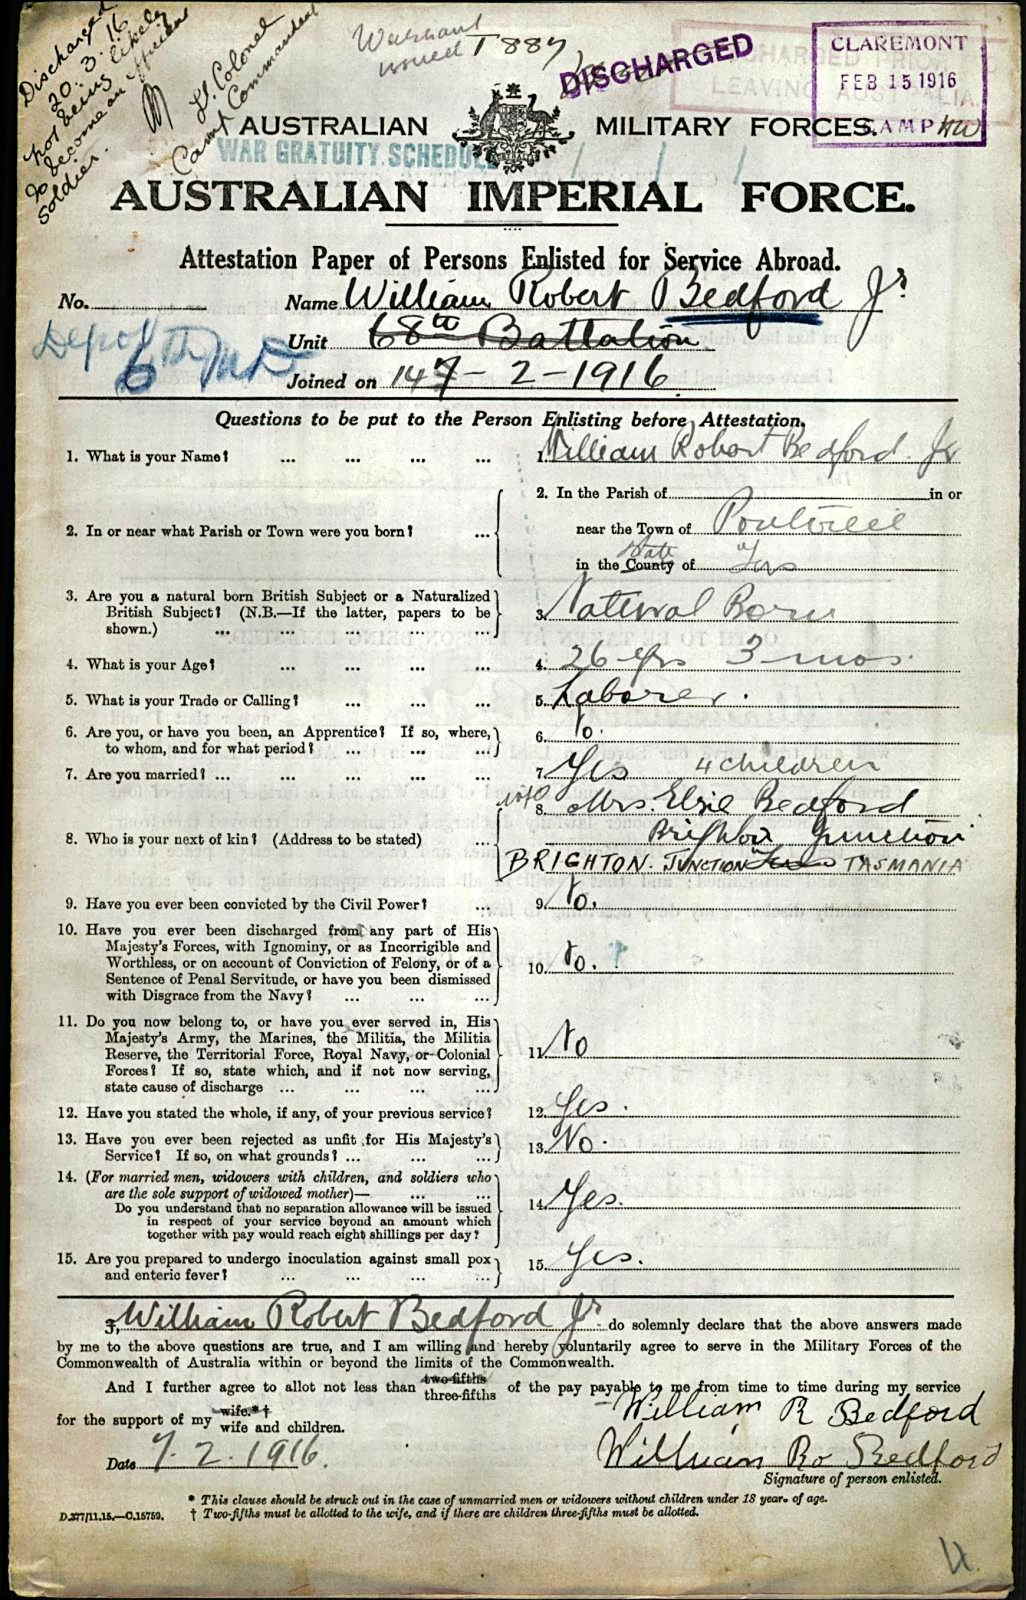 Discharged
20.3.16
not being likely
to become an efficient
soldier.
Lt. Colonel
Camp Commandant
Warrant
issued
T 887
DISCHARGED
DISCHARGED PRIOR
LEAVING AUSTRALIA.
CLAREMONT
FEB 15 1916
CAMP
AUSTRALIAN MILITARY FORCES.
WAR GRATUITY SCHEDULE
AUSTRALIAN IMPERIAL FORCE.
Attestation Paper of Persons Enlisted for Service Abroad.
No. Name William Robert Bedford Jr
Depot Unit 68th Battalion
6th MD Joined on 14 7-2-1916
Questions to be put to the Person Enlisting before Attestation.
1. What is your Name? ... ... ... ... 1. William Robert Bedford Jr
2. In or near what Parish or Town were you born? ... 2. In the Parish of in or
near the Town of Pontville
in the County State of Tas
3. Are you a natural born British Subject or a Naturalized
British Subject? (N.B.—If the latter, papers to be
shown.) ... ... ... ... ... 3. Natural Born
4. What is your Age? ... ... ... ... 4. 26 yrs 3 mos.
5. What is your Trade or Calling? ... ... ... 5. Laborer.
6. Are you, or have you been, an Apprentice? If so, where,
to whom, and for what period? ... ... ... 6. No.
7. Are you married? ... ... ... ... ... 7. Yes 4 children
8. Who is your next of kin? (Address to be stated) ... wife 8. Mrs. Elsie Bedford
Brighton Junction
BRIGHTON. JUNCTION TASMANIA
9. Have you ever been convicted by the Civil Power? ... 9. No.
10. Have you ever been discharged from any part of His
Majesty's Forces, with Ignominy, or as Incorrigible and
Worthless, or on account of Conviction of Felony, or of a
Sentence of Penal Servitude, or have you been dismissed
with Disgrace from the Navy? ... ... ... 10. No.
11. Do you now belong to, or have you ever served in, His
Majesty's Army, the Marines, the Militia, the Militia
Reserve, the Territorial Force, Royal Navy, or Colonial
Forces? If so, state which, and if not now serving,
state cause of discharge ... ... ... ... 11. No
12. Have you stated the whole, if any, of your previous service? 12. Yes.
13. Have you ever been rejected as unfit for His Majesty's
Service? If so, on what grounds? ... ... ... 13. No.
14. (For married men, widowers with children, and soldiers who
are the sole support of widowed mother)— ... ...
Do you understand that no separation allowance will be issued
in respect of your service beyond an amount which
together with pay would reach eight shillings per day? 14. Yes.
15. Are you prepared to undergo inoculation against small pox
and enteric fever? ... ... ... ... 15. Yes.
I, William Robert Bedford Jr. do solemnly declare that the above answers made
by me to the above questions are true, and I am willing and hereby voluntarily agree to serve in the Military Forces of the
Commonwealth of Australia within or beyond the limits of the Commonwealth.
And I further agree to allot not less than two-fifths three-fifths of the pay payable to me from time to time during my service
for the support of my wife.*† wife and children.
William R Bedford
Date 7.2.1916. William Ro Bedford
Signature of person enlisted.
* This clause should be struck out in the case of unmarried men or widowers without children under 18 years of age.
D.377/11.15.—C.15759. † Two-fifths must be allotted to the wife, and if there are children three-fifths must be allotted.